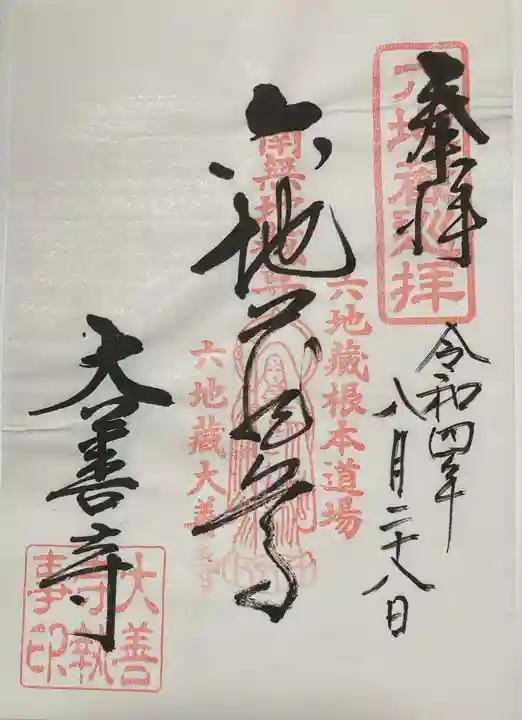 奉拝
六地蔵巡拝
令和四年
八月二十八日
六地藏根本道場
六地蔵尊
南無地蔵尊
六地藏大善寺
大善寺
大善寺執事印